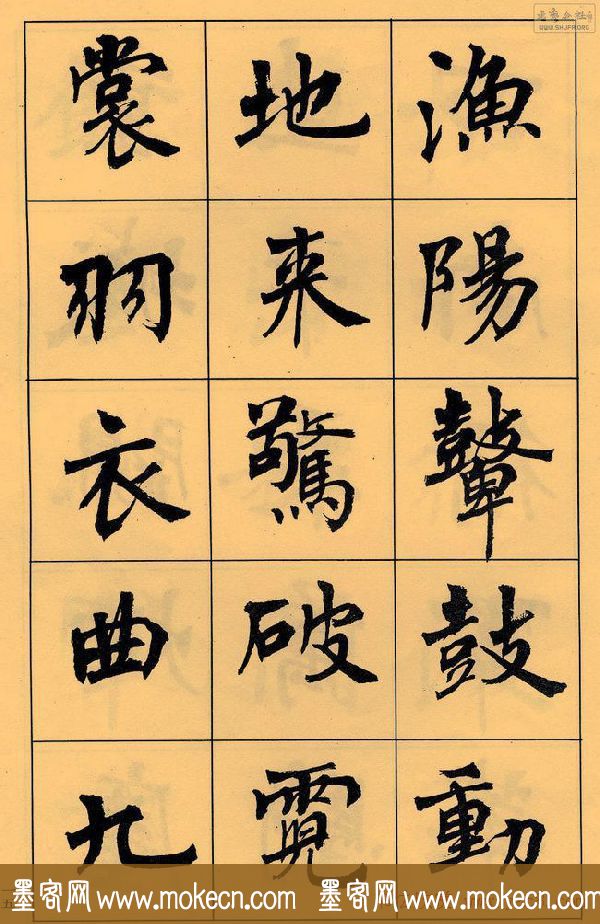 漁陽鼙鼓動
地来驚破霓
裳羽衣曲九
WWW.SHJFR.ORG
墨客网 www.mokecn.com 墨客网 www.mokecn.com